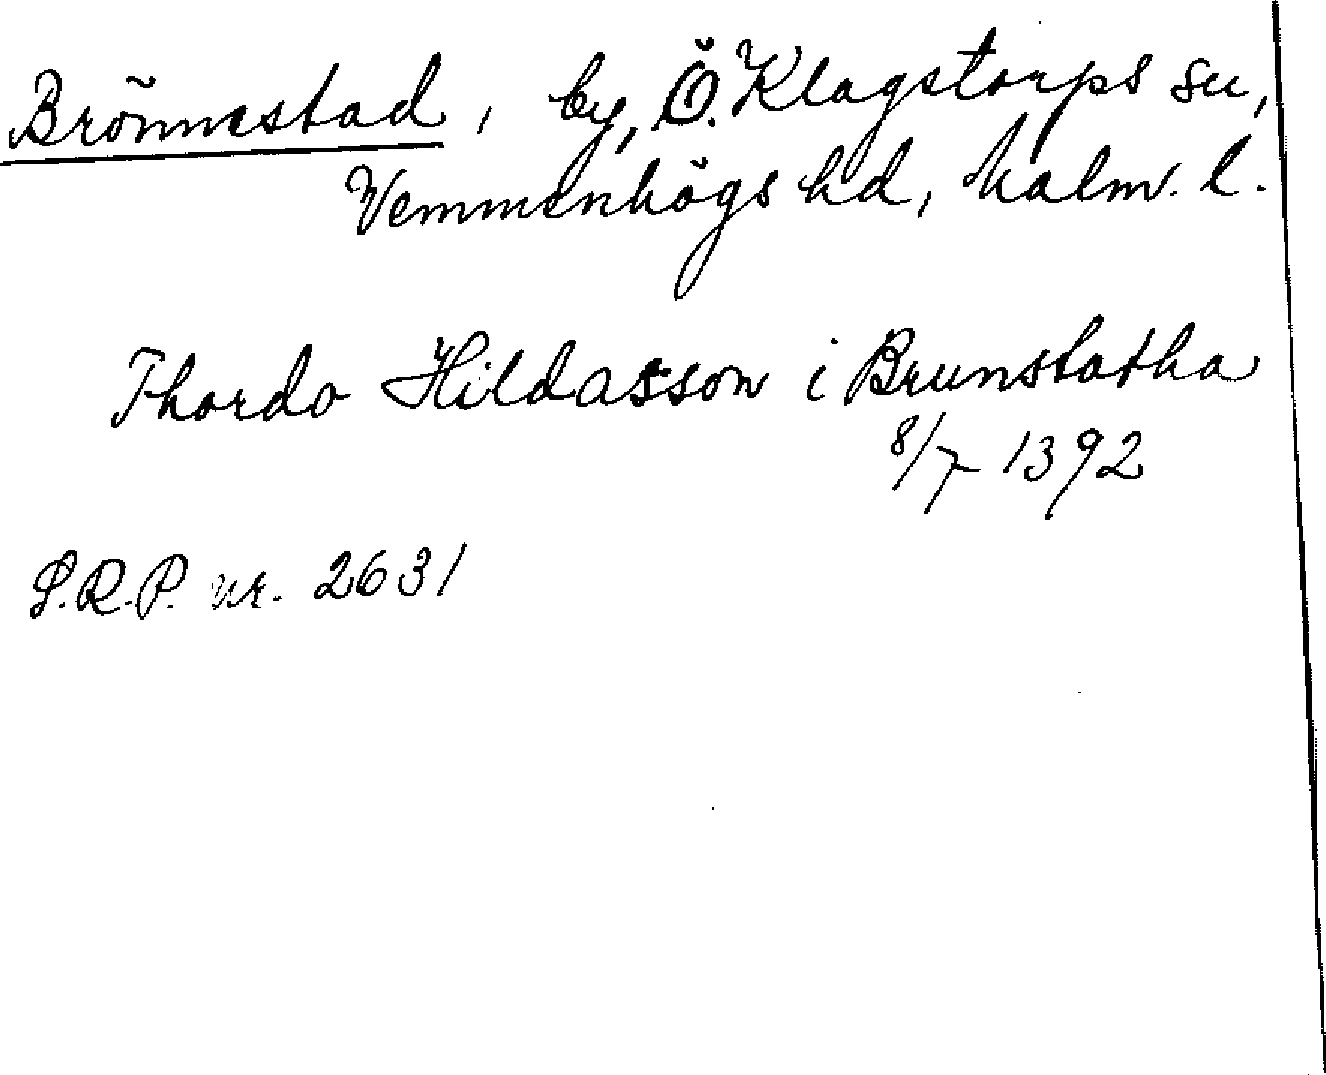 Brönnestad, by, Ö. Klagstorps sn,
Vemmenhögs hd, Malm. l.
Thordo Hildasson i Brunstatha
8/7 1392
S.R.P. nr. 2631